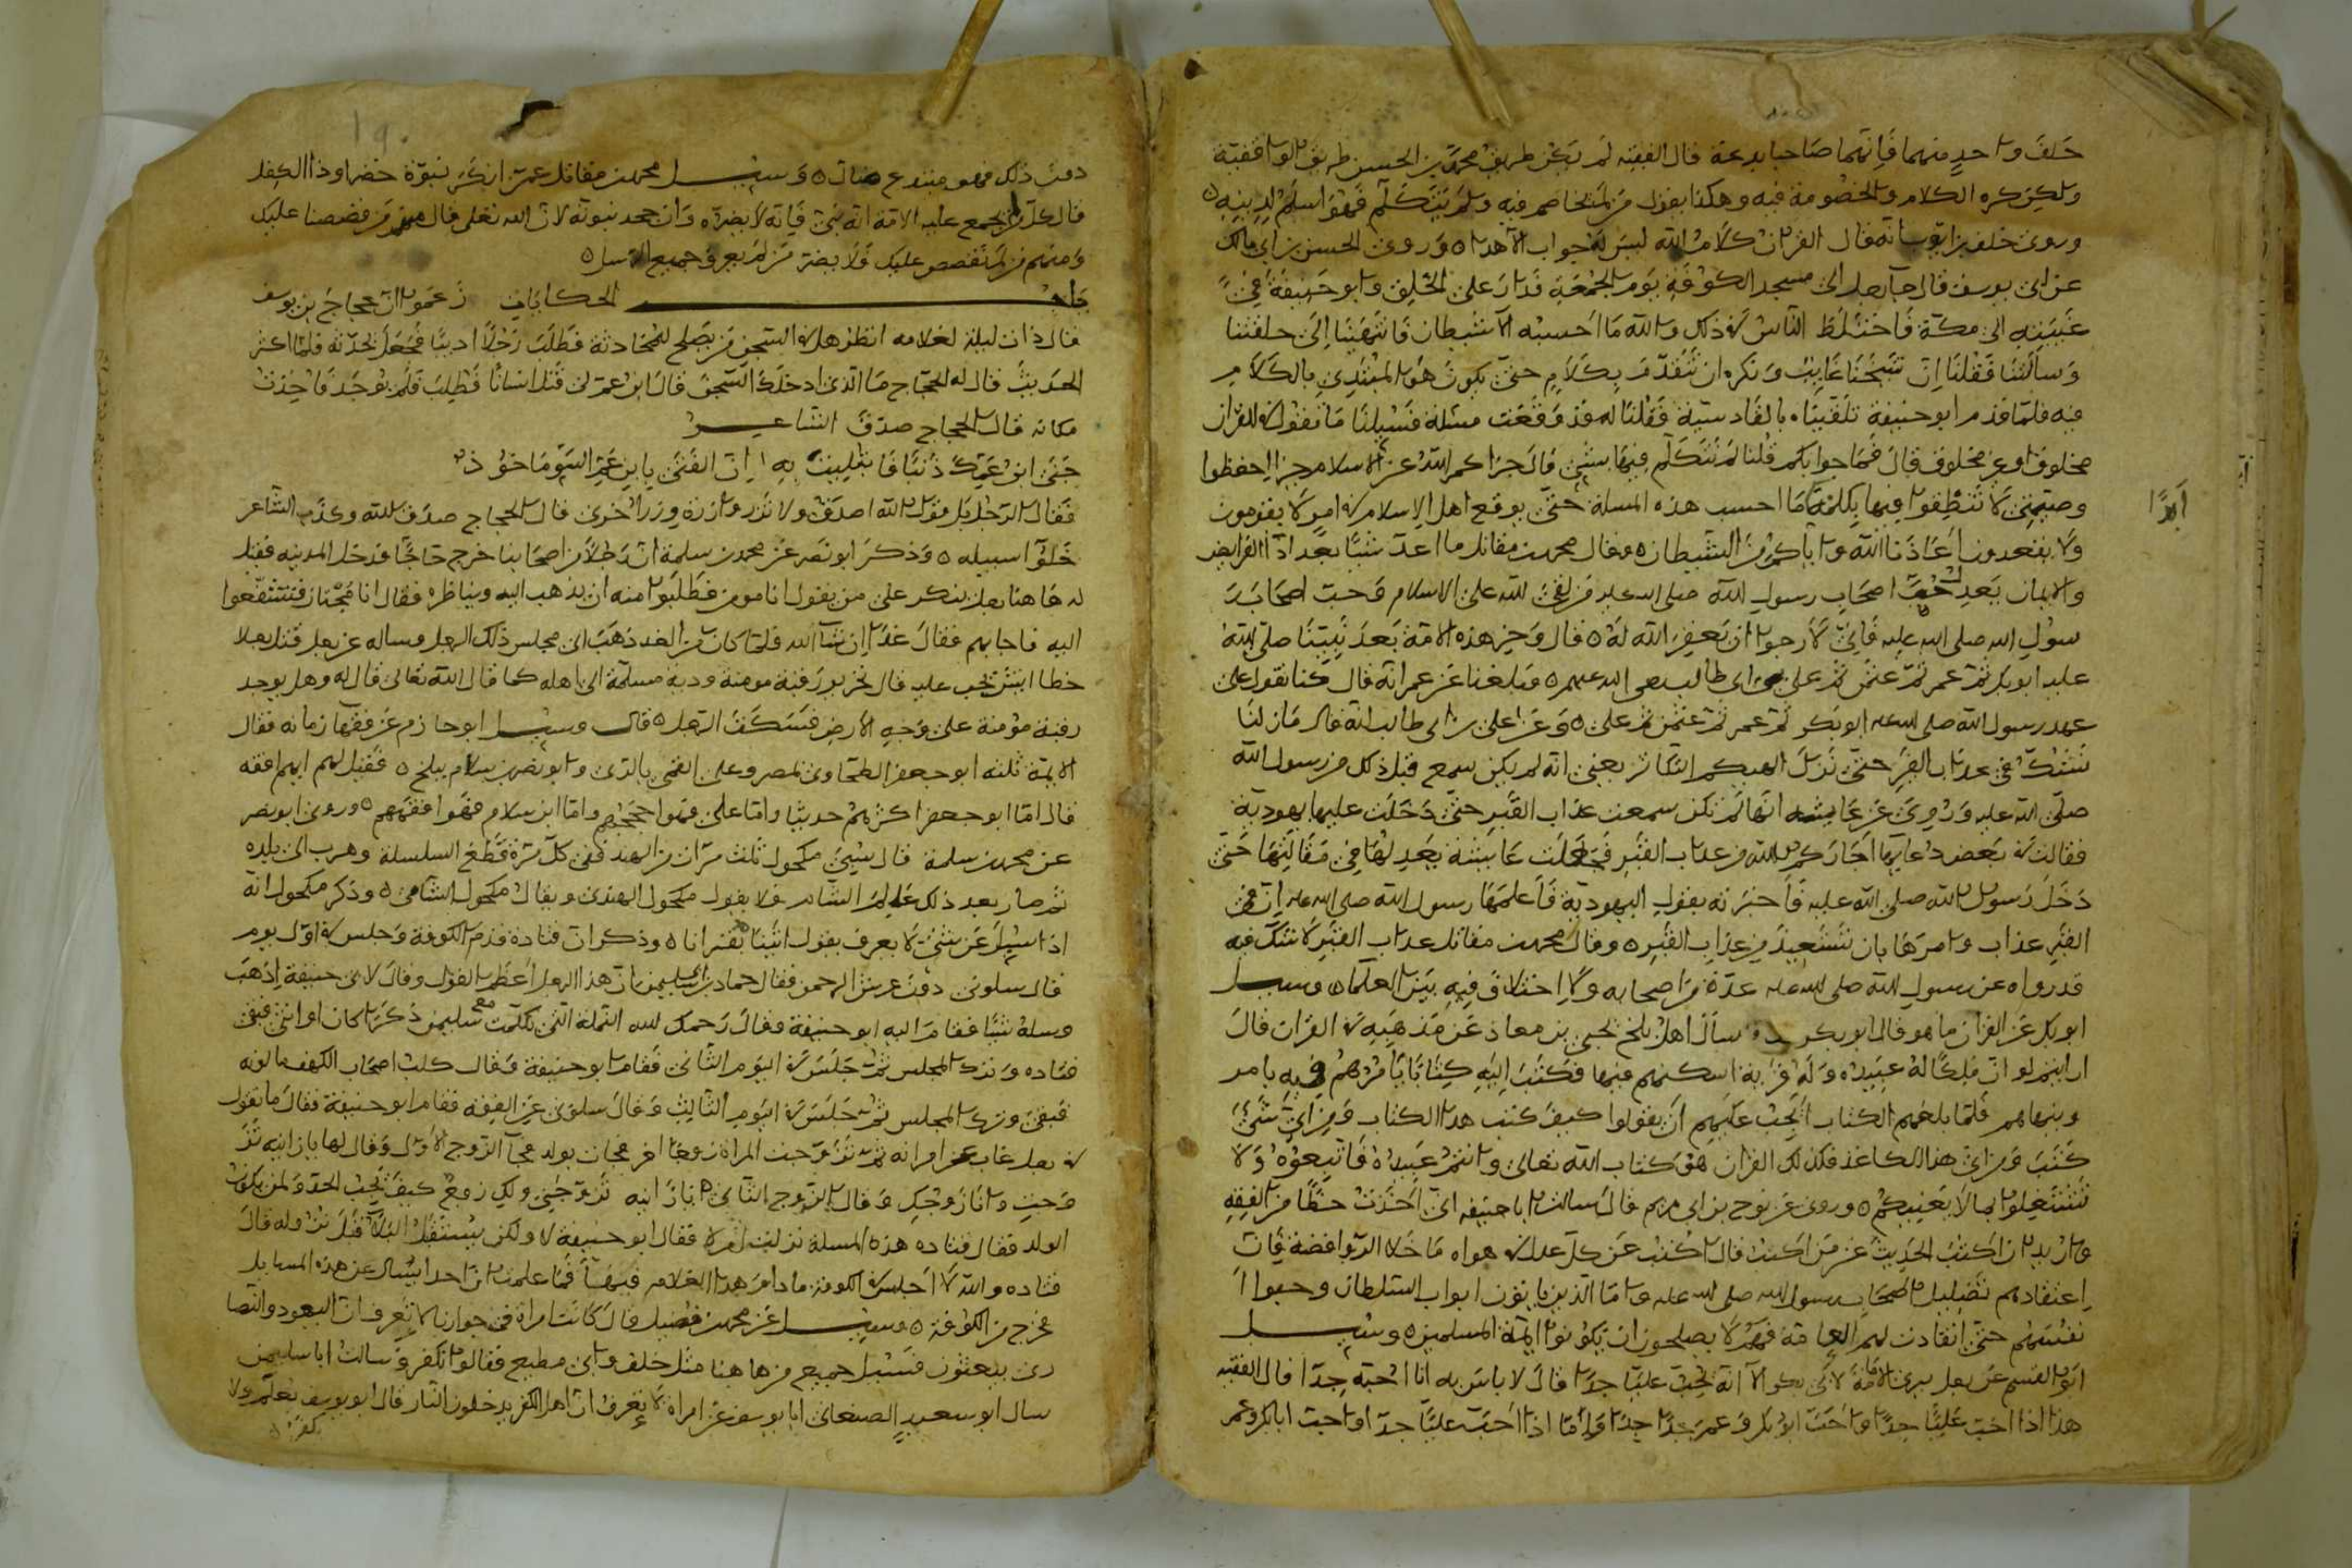 خلف واحد منهما فإنهما صاحبا بدعة قال الفقيه لم يكن طريق محمد بن الحسن طريق الواقفية
ولكن كره الكلام والخصومة فيه وهكذا يقول من لم يخاصم فيه ولم يتكلم فهو اسلم لدينه
وروى خلف بن ايوب انه قال القران كلام الله ليس له جواب الا هذا وروى الحسن بن ابي مالك
عن ابي يوسف قال جا رجل الى مسجد الكوفة يوم الجمعة فدار على الخلق وابو حنيفة في
غيبته الى مكة فاختلط الناس في ذلك والله ما احسبه الا شيطان فانتهينا الى حلقتنا
وسألنا فقلنا ان شيخنا غايب ونكره ان نتقدم بكلام حتى يكون هو المبتدي بالكلام
فيه فلما قدم ابو حنيفة تلقيناه بالقادسية فقلنا له قد وقعت مسئلة فسيلنا ما نقول في القران
مخلوق او غير مخلوق قال فما جوابكم قلنا لم نتكلم فيها بشي قال جزاكم الله عن الاسلام خيرا احفظوا
وصيتي لا تنطقوا فيها بكلمة ما احسب هذه المسلة حتى يوقع اهل الاسلام في امر لا يقومون
ابدا
ولا يقعدون اعاذنا الله واياكم من الشيطان وقال محمد بن مقاتل ما اعد شيئا بعد اداء الفرايض
والايمان بعد حب اصحاب رسول الله صلى الله عليه من لقي الله على الاسلام وحب اصحاب ر
سول الله صلى الله عليه فاني لارجوا ان يغفر الله له قال وخير هذه الامة بعد نبينا صلى الله
عليه ابو بكر ثم عمر ثم عثمن ثم علي بن ابي طالب رضي الله عنهم وبلغنا عن عمر انه قال كنا نقول على
عهد رسول الله صلى الله عليه ابو بكر ثم عمر ثم عثمن ثم علي وعن علي بن ابي طالب انه قال ما زلنا
نشك في عذاب القبر حتى نزل الهيكم التكاثر يعني انه لم يكن سمع قبل ذلك من رسول الله
صلى الله عليه وروي عن عايشه انها لم تكن سمعت عذاب القبر حتى دخلت عليها يهودية
فقالت في بعض دعايها اجارك الله من عذاب القبر فجعلت عايشة لها في مقالتها حتى
دخل رسول الله صلى الله عليه فاخبرته بقول اليهودية فاعلمها رسول الله صلى الله عليه ان في
القبر عذاب وامرها بان تستعيذ من عذاب القبر وقال محمد بن مقاتل عذاب القبر لا شك فيه
قد رواه عن رسول الله صلى الله عليه عدة من اصحابه ولا اختلاف فيه بين العلماء وسيل
ابو بكر عن القران ما هو قال ابو بكر سأل اهل بلخ يحيى بن معاذ عن مذهبه في القران قال
ارايتم لو ان ملكا له عبيده وله قرية اسكنهم فيها فكتب اليه كتابا يامرهم فيه بامر
وينهاهم فلما بلغهم الكتاب ايجب عليهم ان يقولوا كيف كتب هذا الكتاب ومن اي شي
كتب ومن اي هذا الكاغذ فكذلك القران هو كتاب الله تعالى وانتم عبيده فاتبعوه ولا
تشتغلوا بما لا يعنيكم وروى عن نوح بن ابي مريم قال سالت ابا حنيفه اني اخذت حظا من الفقه
واريد ان اكتب الحديث عن من اكتب قال اكتب عن كل عدل في هواه ما خلا الروافضة فان
اعتقادهم تضليل اصحاب رسول الله صلى الله عليه واما الذين ياتون ابواب السلطان وحبوا ا
نفسهم حتى انقادت لهم العامة فهم لا يصلحون ان يكونوا ايمة المسلمين وسيل
ابو القسم عن رجل يرى الامامة لابي بكر الا انه يحب عليا جدا قال لا باس به انا احبه جدا قال الفقيه
هذا اذا احب عليا جدا واحب ابو بكر وعمر جدا جدا واما اذا احب عليا جدا واحب ابا بكر وعمر
١٩٠
دون ذلك فهو مبتدع ضال وسيل محمد بن مقاتل عمن انكر نبوة خضر وذا الكفل
قال كل من لم يجمع عليه الامة انه نبي فانه لا يضره وان جحد نبوته لان الله تعالى قال منهم من قصصنا عليك
ومنهم من لم نقصص عليك ولا يضر من لم يعرف جميع الرسل
باب الحكايات زعموا ان حجاج بن يوسف
قال ذات ليلة لغلامه انظر هل في السجن من يصلح للمحادثة فطلب رجلا اديبا فجعل يحدثه فلما اكثر
الحديث قال له الحجاج ما الذي ادخلك السجن قال ابن عم لي قتل انسانا فطلب فلم يوجد فاخذت
مكانه قال الحجاج صدق الشاعر
جنى ابن عمك ذنبا فابتليت به ان الفتى بابن عم السوء ماخوذ
فقال الرجل بل قول الله اصدق ولا تزر وازرة وزر اخرى قال الحجاج صدق الله وكذب الشاعر
خلوا سبيله وذكر ابو نصر عن محمد بن سلمة ان رجلا من اصحابنا خرج حاجا فدخل المدينه فقيل
له هاهنا رجل ينكر على من يقول انا مومن فطلبوا منه ان يذهب اليه ويناظره فقال انا مجتاز فتشفعوا
اليه فاجابهم فقال غدا ان شا الله فلما كان من الغد ذهب الى مجلس ذلك الرجل وساله عن رجل قتل رجلا
خطا ايش يجب عليه قال تحرير رقبة مومنة ودية مسلمة الى اهله كما قال الله تعالى قال له وهل يوجد
رقبة مؤمنة على وجه الارض فسكت الرجل قال وسيل ابو حازم عن فقها زمانه فقال
الايمة ثلثه ابو جعفر الطحاوي بمصر وعلي القمي بالري وابو نصر بن سلام ببلخ فقيل لهم ايهم افقه
قال اما ابو جعفر اكثرهم حديثا واما علي فهو احججهم واما ابن سلام فهو افقههم وروى ابو نصر
عن محمد بن سلمة قال سبي مكحول ثلث مرات من الهند ففي كل مرة قطع السلسلة وهرب الى بلده
ثم صار بعد ذلك عالم الشام فلا يقول مكحول الهندي ويقال مكحول الشامي وذكر مكحول انه
اذا سيل عن شي لا يعرف يقول وذكر ان قتادة قدم الكوفة وجلس في اول يوم
قال سلوني دون عرش الرحمن فقال حماد بن ابي سليمن ان هذا الرجل اعظم القول وقال لابي حنيفة اذهب
وسله شيا فقام اليه ابو حنيفة فقال رحمك الله النملة التي تكلمت مع سليمن ذكرا كان او انثى فبقي
قتاده وترك المجلس ثم جلس في اليوم الثاني فقام ابو حنيفة فقال كلب اصحاب الكهف ما لونه
فبقي وترك المجلس ثم جلس في اليوم الثالث وقال سلوني عن الفقه فقام ابو حنيفة فقال ما تقول
في رجل غاب عن امراته ثم تزوجت المراة زوجا اخر فجات بولد فجا الزوج الاول وقال لها يا زانيه تز
وجت وانا زوجك وقال الزوج الثاني يا زانيه تزوجتي ولك زوج كيف يجب الحد ولمن يكون
الولد فقال قتاده هذه المسلة نزلت ام لا فقال ابو حنيفة لا ولكن يستقبل البلاء قبل نزوله قال
قتاده والله لا اجلس في الكوفة ما دام هذا الغلام فيها فما علمت ان احدا يسال عن هذه المسايل
خرج من الكوفة وسيل عن محمد بن فضيل قال كانت امراة في جوارنا لا تعرف ان اليهود والنصا
رى يبعثون فسيل جميع من هاهنا مثل خلف وابي مطيع فقالوا تكفر وسالت ابا سليمن
سال ابو سعيد الصنعاني ابا يوسف عن امراة لا تعرف ان اهل الكفر يدخلون النار قال ابو يوسف تعلم ولا
تكفر